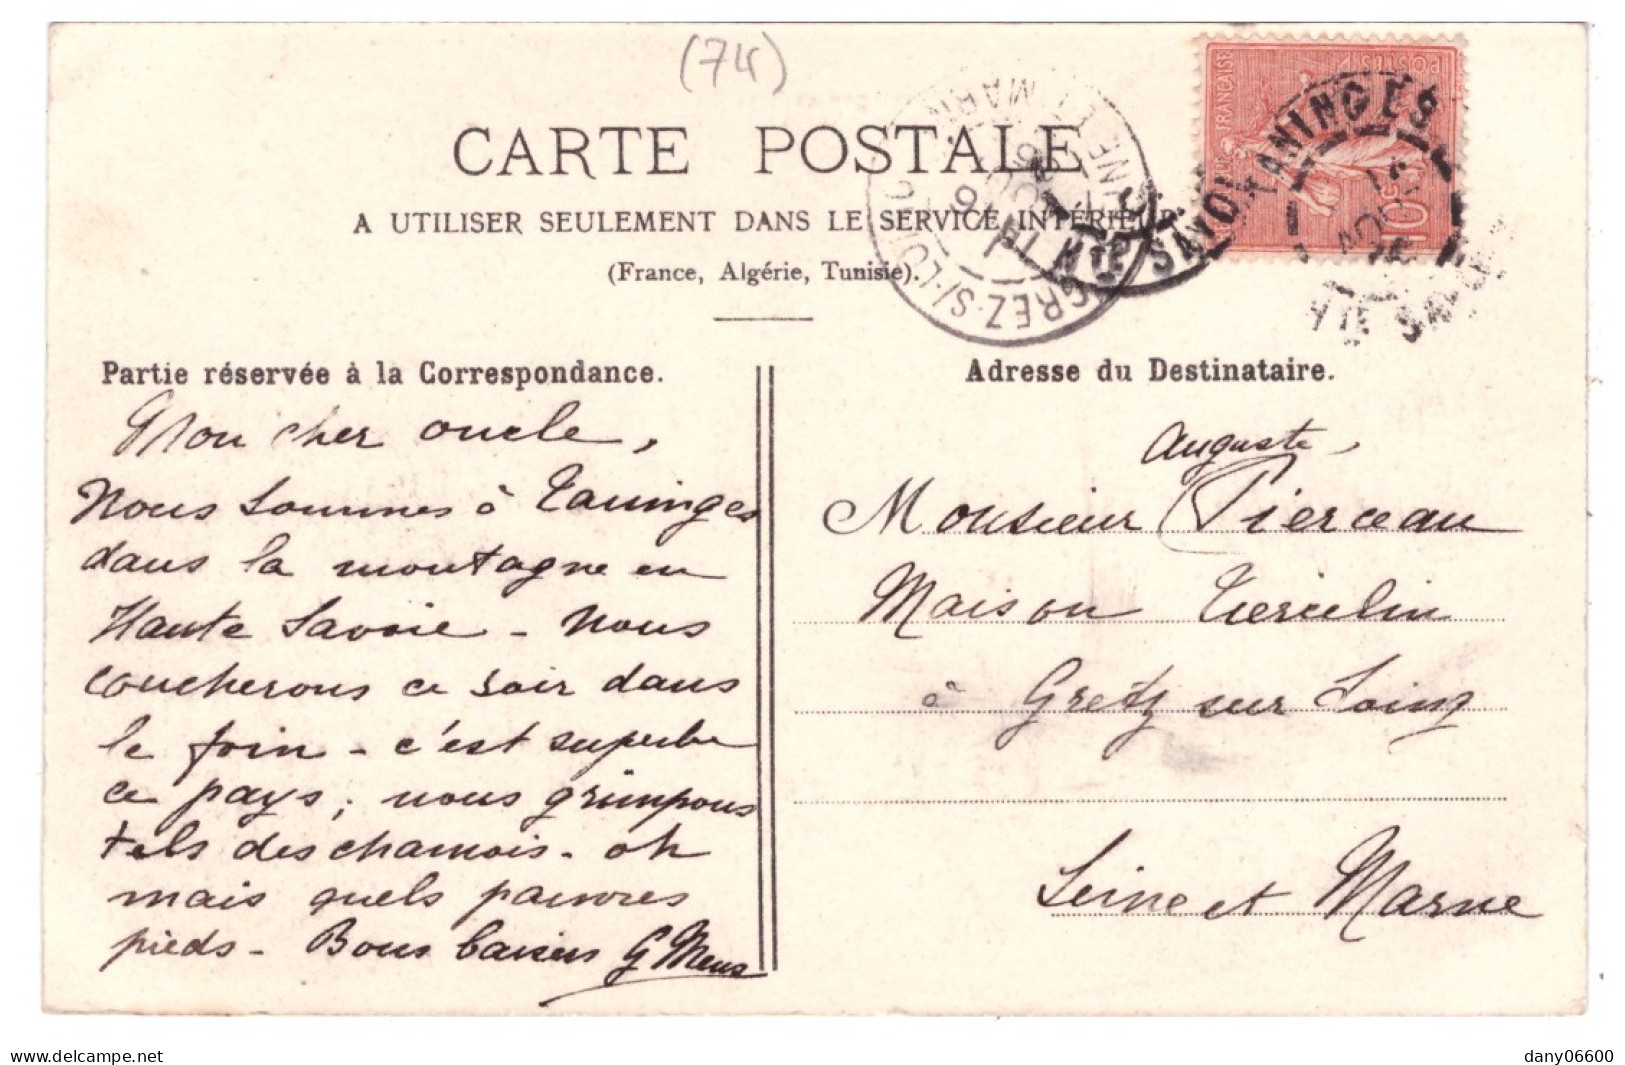 (74)
CARTE POSTALE
A UTILISER SEULEMENT DANS LE SERVICE INTÉRIEUR
(France, Algérie, Tunisie).
FRANÇAISE
POSTES
10
TANINGES
HTE SAVOIE
GREZ-S/-LOING
SEINE ET MARNE
Partie réservée à la Correspondance.
Mon cher oncle,
Nous sommes à Taninges
dans la montagne en
Haute Savoie - Nous
coucherons ce soir dans
le foin - c'est superbe
ce pays; nous grimpons
tels des chamois - oh
mais quels pauvres
pieds - Bons baisers G Mens
Adresse du Destinataire.
Auguste
Monsieur Pierceau
Maison Tiercelin
à Gretz sur Loing
Seine et Marne
www.delcampe.net
dany06600